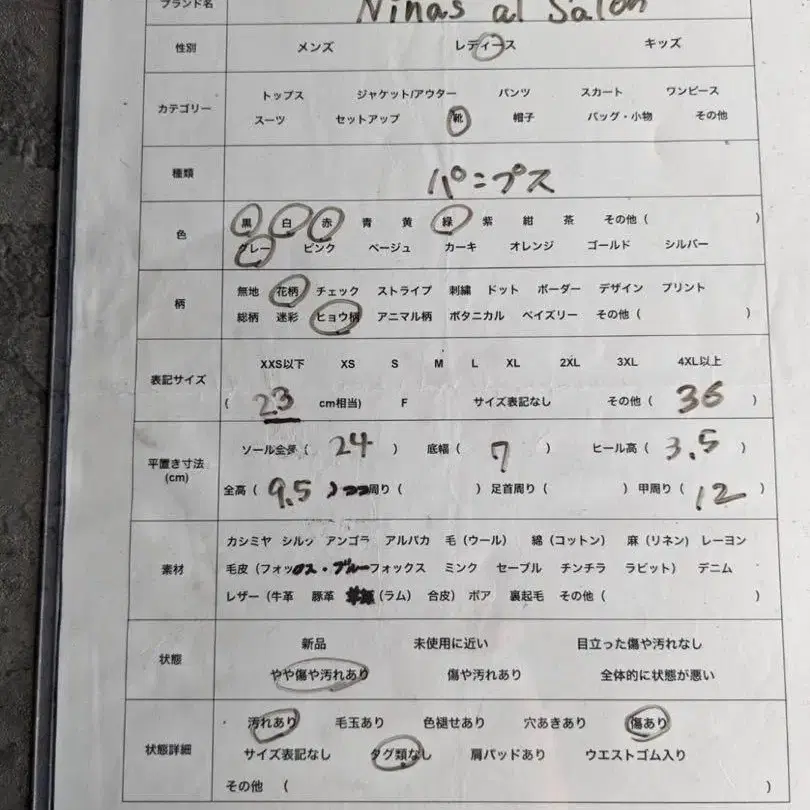 ブランド名 Ninas al Salon
性別 メンズ レディース キッズ
トップス ジャケット/アウター パンツ スカート ワンピース
カテゴリー
スーツ セットアップ 靴 帽子 バッグ・小物 その他
種類 パンプス
黒 白 赤 青 黄 緑 紫 紺 茶 その他 ( )
色
グレー ピンク ベージュ カーキ オレンジ ゴールド シルバー
無地 花柄 チェック ストライプ 刺繍 ドット ボーダー デザイン プリント
柄
総柄 迷彩 ヒョウ柄 アニマル柄 ボタニカル ペイズリー その他 ( )
XXS以下 XS S M L XL 2XL 3XL 4XL以上
表記サイズ
( 23 cm相当) F サイズ表記なし その他 ( 36
ソール全長 ( 24 ) 底幅 ( 7 ) ヒール高 ( 3.5 )
平置き寸法
(cm)
全高 ( 9.5 ) 周り ( ) 足首周り ( ) 甲周り ( 12 )
カシミヤ シルク アンゴラ アルパカ 毛 (ウール) 綿 (コットン) 麻 (リネン) レーヨン
素材
毛皮 (フォックス・ブルーフォックス ミンク セーブル チンチラ ラビット) デニム
レザー (牛革 豚革 (ラム) 合皮) ボア 裏起毛 その他 ( )
新品 未使用に近い 目立った傷や汚れなし
状態
やや傷や汚れあり 傷や汚れあり 全体的に状態が悪い
汚れあり 毛玉あり 色褪せあり 穴あきあり 傷あり
状態詳細
サイズ表記なし タグ類なし 肩パッドあり ウエストゴム入り
その他 ( )